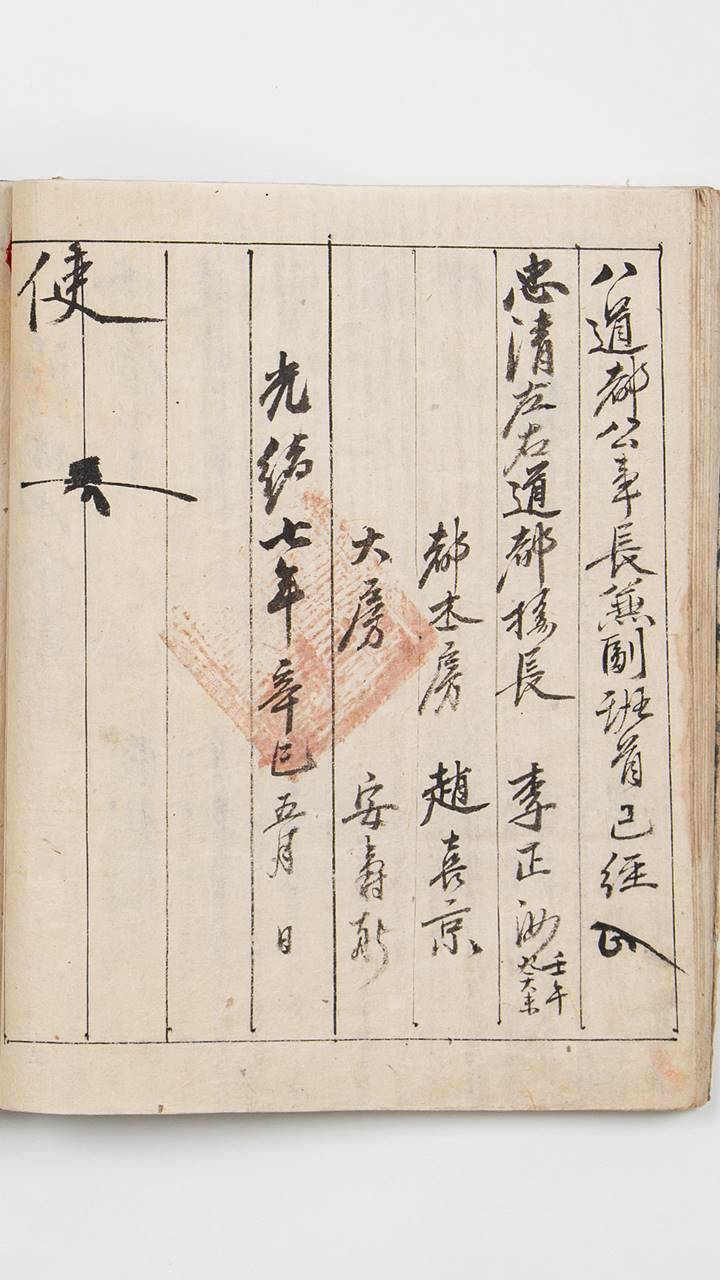 八道都公事長兼副班首已經
忠清左右道都接長 李正汝 壬午
大末
都木房 趙喜京
大房 安壽彩
光緒七年辛巳五月 日
使